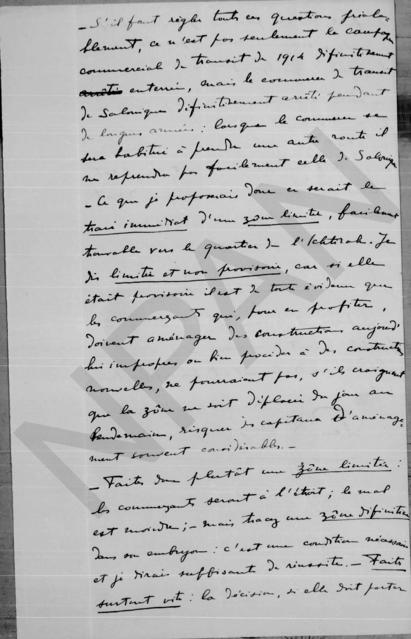 – S'il faut régler toutes ces questions préala-
blement, ce n'est pas seulement la campagne
commerciale de transit de 1914 définitivement
enterrée, mais le commerce de transit
de Salonique définitivement arrêté pendant
de longues années : lorsque le commerce se
sera habitué à prendre une autre route il
ne reprendra pas facilement celle de Salonique
– Ce que je proposais donc ce serait le
tracé immédiat d'une zône limitée, facilement
trouvable vers le quartier de l'Ichtirak. Je
dis limitée et non provisoire, car si elle
était provisoire il est de toute évidence que
les commerçants qui, pour en profiter,
doivent aménager des constructions aujourd'
hui impropres ou bien procéder à des constructions
nouvelles, ne pourraient pas, s'ils craignent
que la zône ne soit déplacée du jour au
lendemain, risquer des capitaux d'aménage-
ment souvent considérables. –
– Faites donc plutôt une zône limitée :
les commerçants seront à l'étroit ; le mal
est moindre ; – mais tracez une zône définitive
dans son embryon : c'est une condition nécessaire
et je dirais suffisante de réussite. – Faites
surtout vite : la décision, si elle doit porter
NPAN